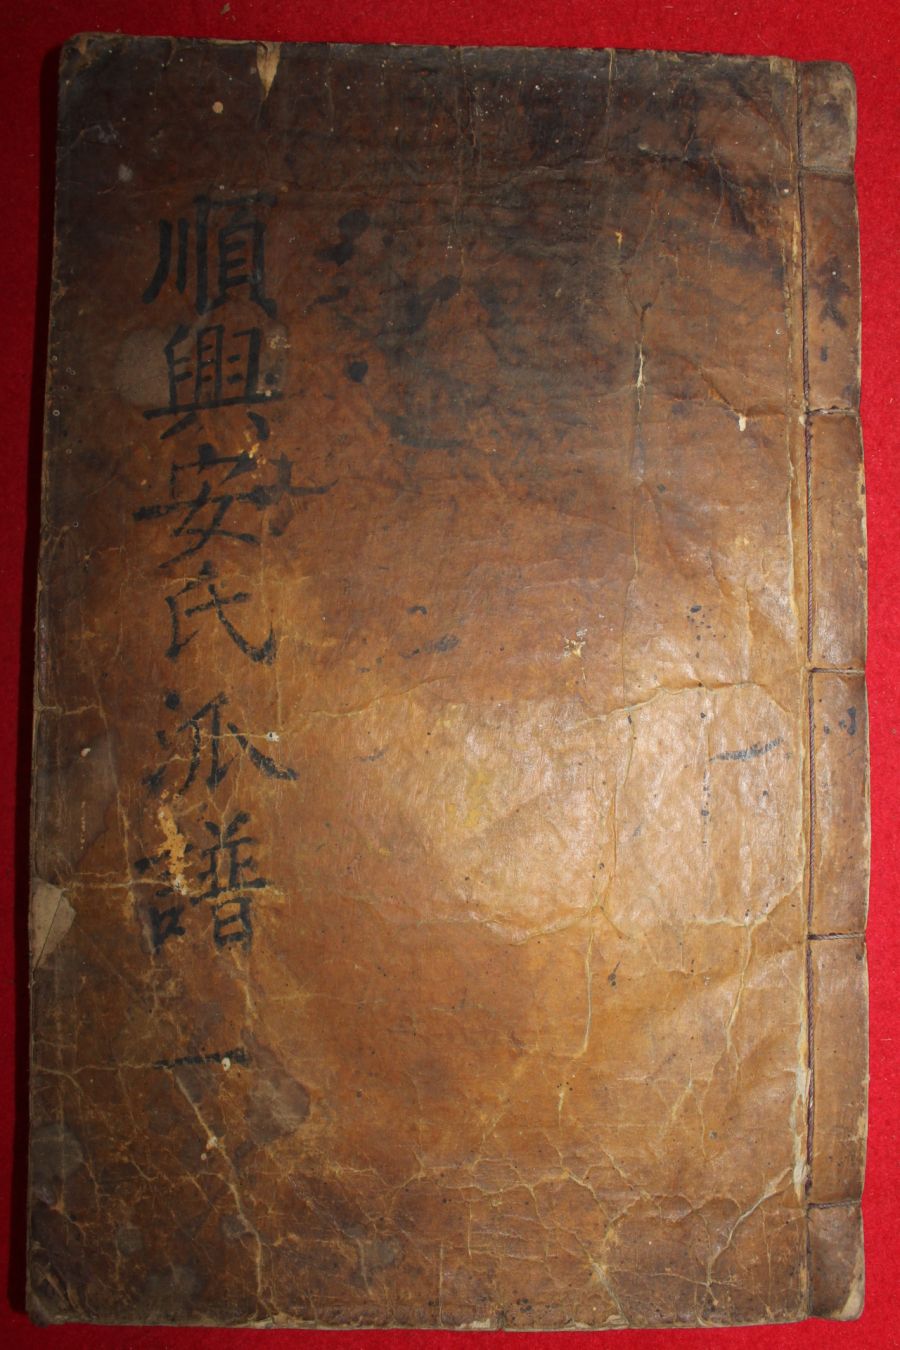 順興安氏派譜 一